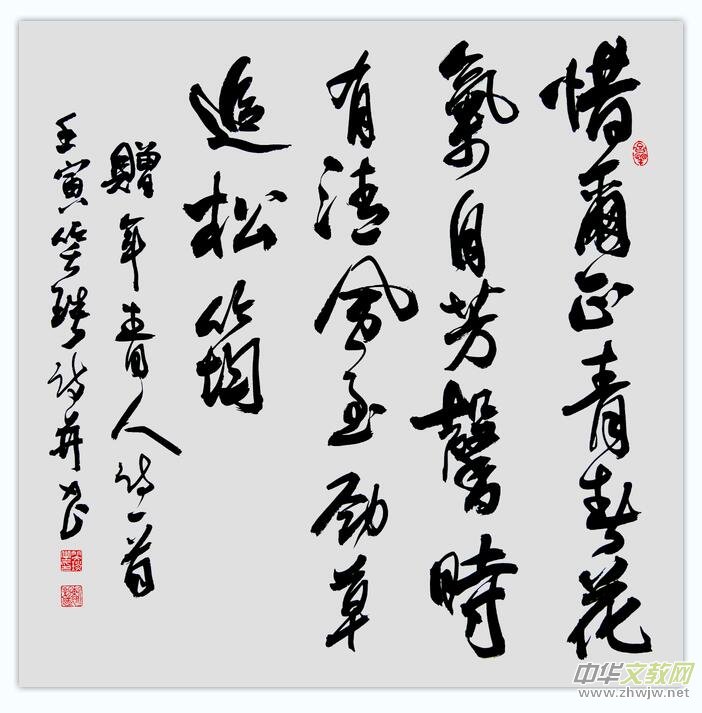 惜爾正青春花
氣自芳馨時
有清風至勁草
追松筠
贈年青人詩一首
壬寅笑詩并書
中华文教网
www.zhwjw.net